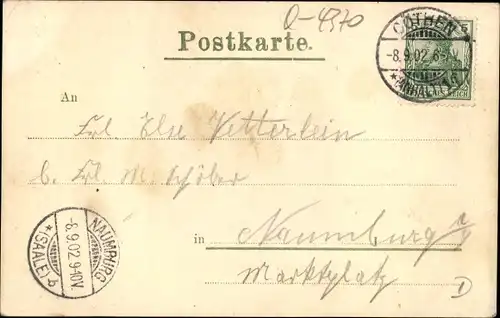 Q-4970
Postkarte.
CÖTHEN
-8.9.02.6-7
*(ANHALT)
5
REICH
An
Frl. Else Vetterlein
b. Frl. M. Schöber
in Naumburg a/
Marktplatz
NAUMBURG
-8.9.02.9-10V.
*(SAALE) b
D